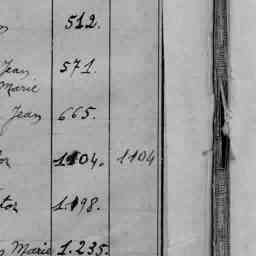 512.
Jean 571.
Marie
Jean 665.
1104. 1104
1.198.
Marie 1.235.